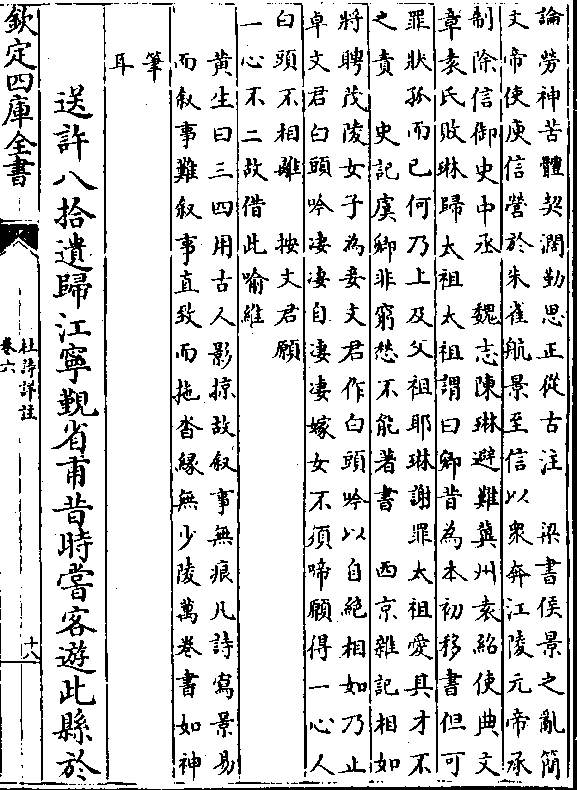 論勞神苦體契濶勤思正從古注　梁書侯景之亂簡
文帝使庾信營於朱雀航景至信以衆奔江陵元帝承
制除信御史中丞　魏志陳琳避難冀州袁紹使典文
章袁氏敗琳歸太祖太祖謂曰卿昔為本初移書但可
罪狀孤而已何乃上及父祖耶琳謝罪太祖愛其才不
之責　史記虞卿非窮愁不能著書　西京雜記相如
將聘茂陵女子為妾文君作白頭吟以自絶相如乃止
卓文君白頭吟凄凄自凄凄嫁女不須啼願得一心人
白頭不相離　按文君願
一心不二故借此喻維
黄生曰三四用古人影掠故叙事無痕凡詩寫景易
而叙事難叙事直致而拖沓縁無少陵萬卷書如神
筆
耳
送許八拾遺歸江寧覲省甫昔時嘗客遊此縣於
欽定四庫全書
杜詩詳註
卷六
十八